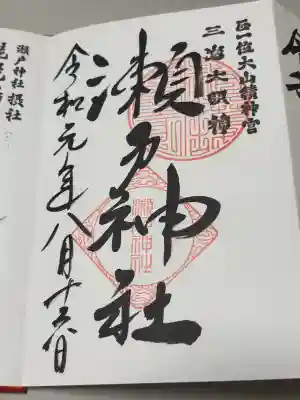 正一位大山積神宮
三島大明神
瀬戸神社
令和元年八月十六日
瀬戸神社 摂社